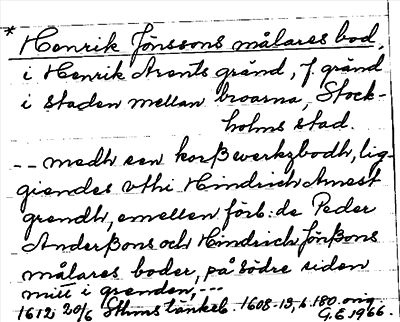 * Henrik Jönssons målares bod,
i Henrik Arents gränd, f. gränd
i staden mellan broarna, Stock-
holms stad.
-- medh een korßwerkzbodh, lig-
giendes vthi Hindrich Arnest
grendh, emellen förb:de Peder
Anderßons och Hindrich Jönßons
målares boder, på södre siden
mitt i grenden, ---
1612 20/6 Sthms tänkeb. 1608-19, s. 180. orig.
G.E 1966.